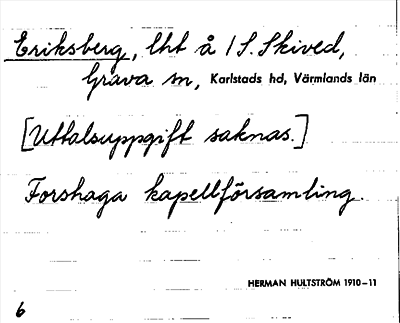 Eriksberg, lht å /S. Skived,
Grava sn, Karlstads hd, Värmlands län
[Uttalsuppgift saknas.]
Forshaga kapellförsamling.
HERMAN HULTSTRÖM 1910-11
6